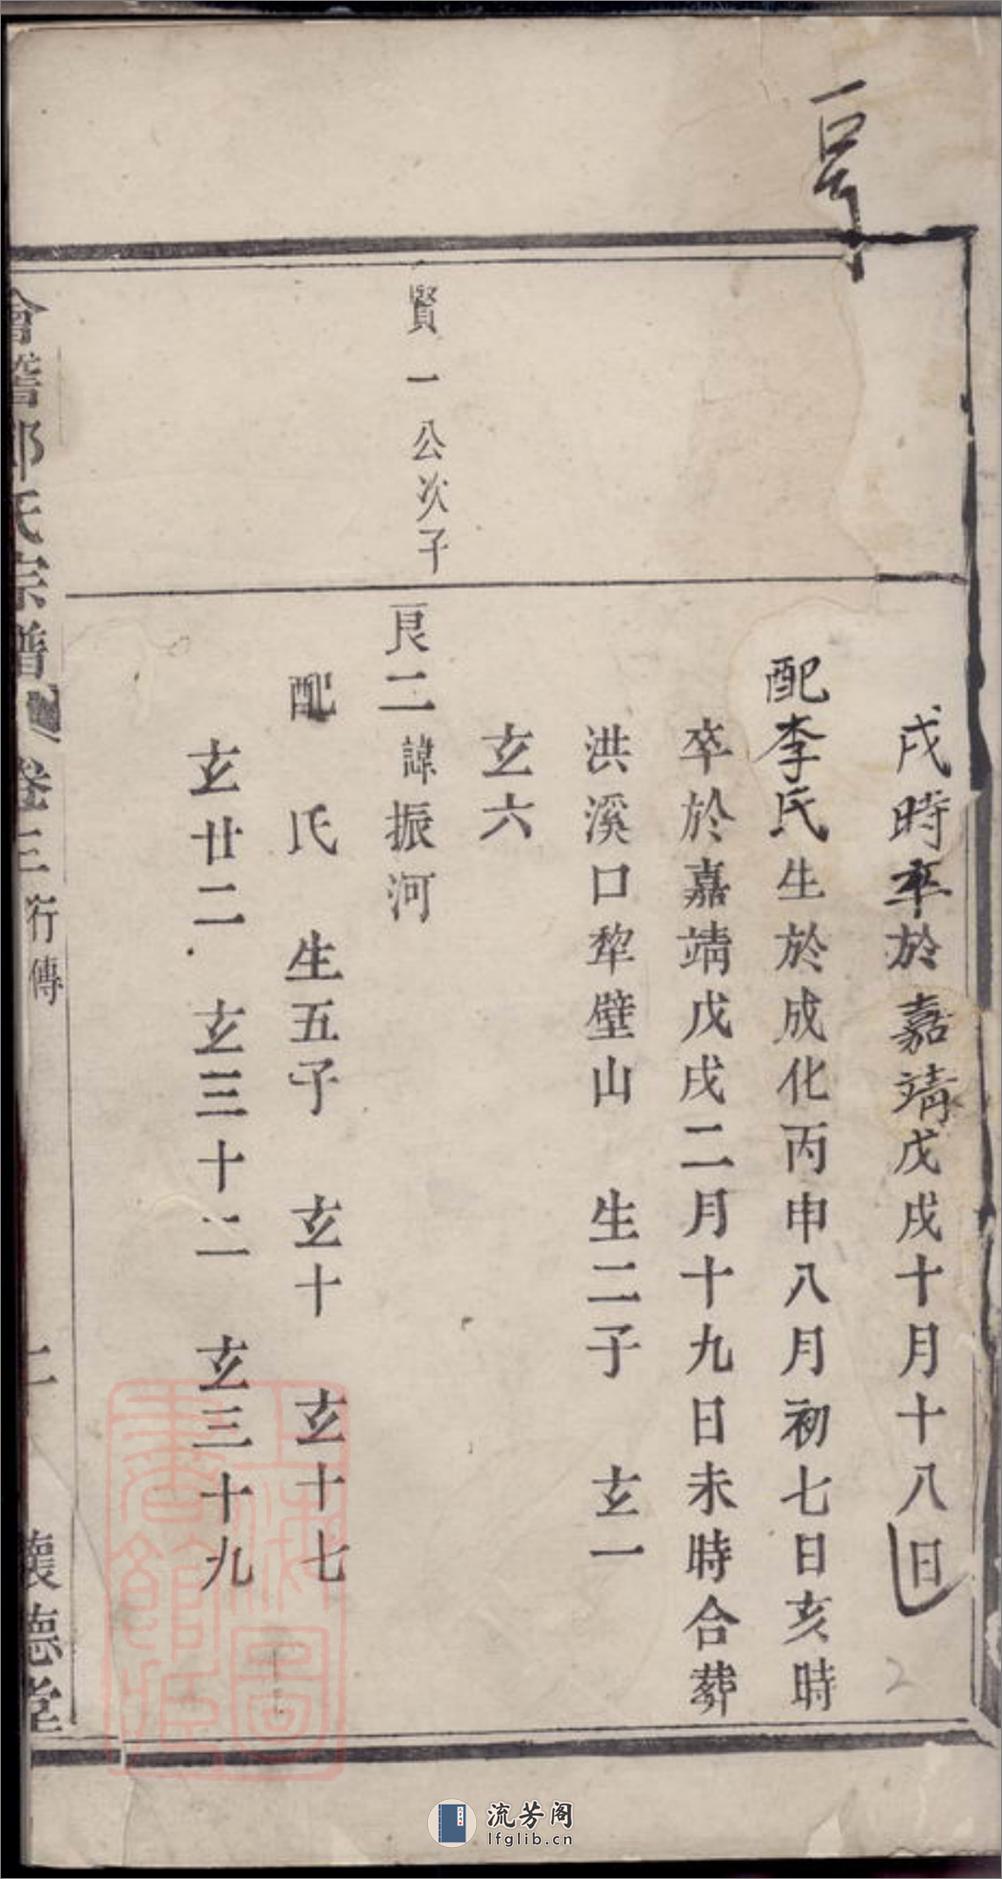 一号
戌時卒於嘉靖戊戌十月十八日
配李氏生於成化丙申八月初七日亥時
卒於嘉靖戊戌二月十九日未時合葬
洪溪口犂壁山 生二子 玄一
玄六
賢一公次子
艮二諱振河
配 氏 生五子 玄十 玄十七
玄廿二 玄三十二 玄三十九
會稽 氏宗譜 卷三 行傳 二 懷德堂
2
上海圖書館藏
流芳阁
lfglib.cn